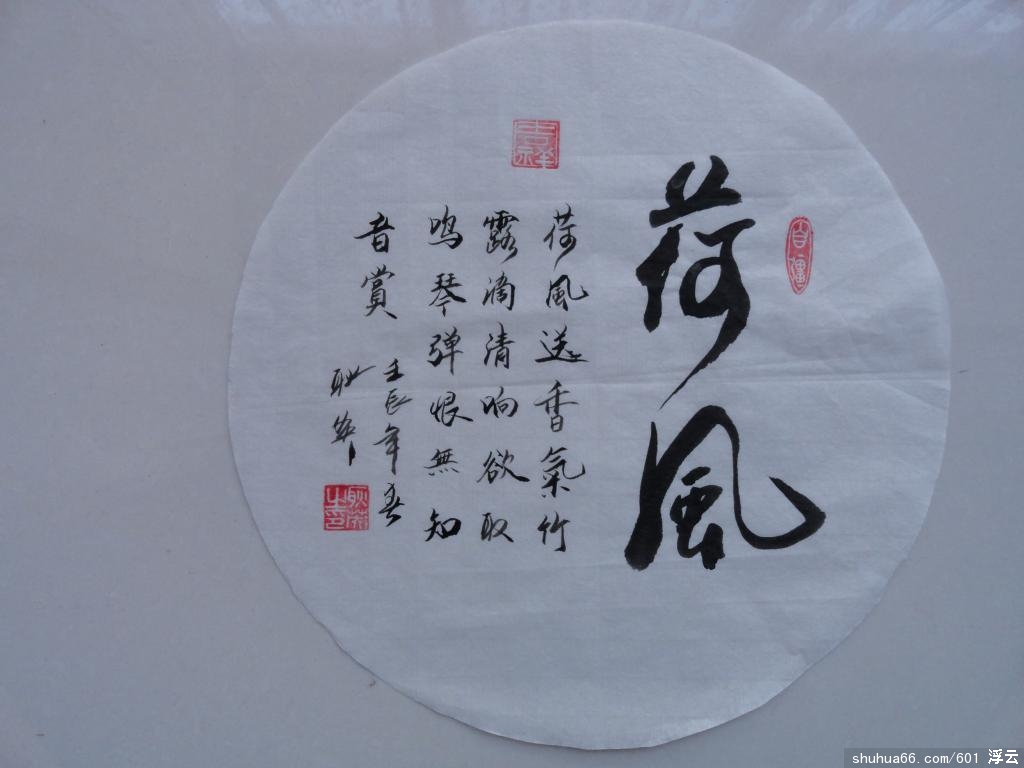 荷風
荷風送香氣竹
露滴清响欲取
鸣琴弹恨無知
音賞
壬辰年春
耿
shuhua66.com/601 浮云